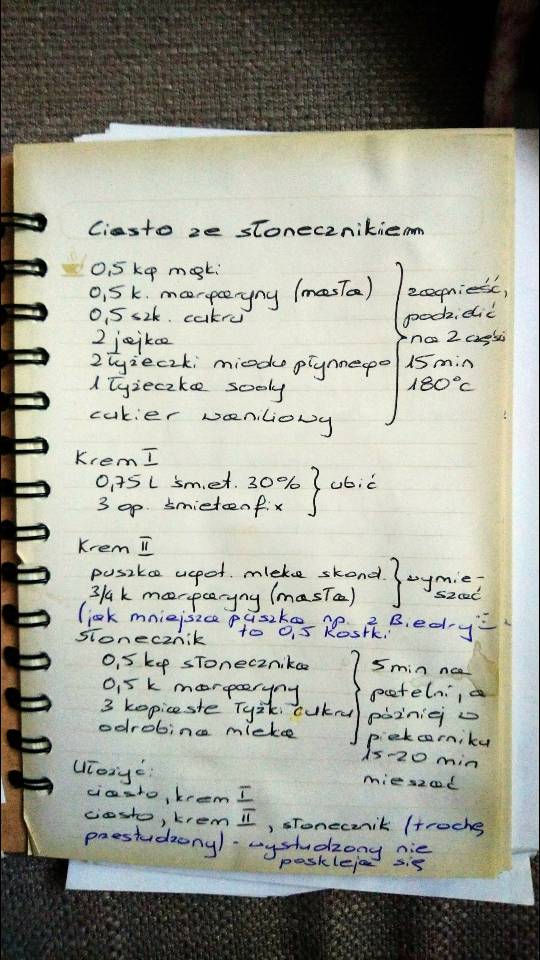 Ciasto ze słonecznikiem
0,5 kg mąki
0,5 k. margaryny (masła)
0,5 szk. cukru
2 jajka
2 łyżeczki miodu płynnego
1 łyżeczka sody
cukier waniliowy
zagnieść,
podzielić
na 2 części
15 min
180°C
Krem I
0,75 L śmiet. 30%
3 op. śmietanfix
ubić
Krem II
puszka ugot. mleka skond.
3/4 k margaryny (masła)
wymie-
szać
(jak mniejsza puszka np. z Biedry
to 0,5 kostki
słonecznik
0,5 kg słonecznika
0,5 k margaryny
3 kopiaste łyżki cukru
odrobina mleka
5 min na
patelni, a
później w
piekarniku
15-20 min
mieszać
Ułożyć:
ciasto, krem I
ciasto, krem II, słonecznik (trochę
przestudzony) - wystudzony nie
poskleja się